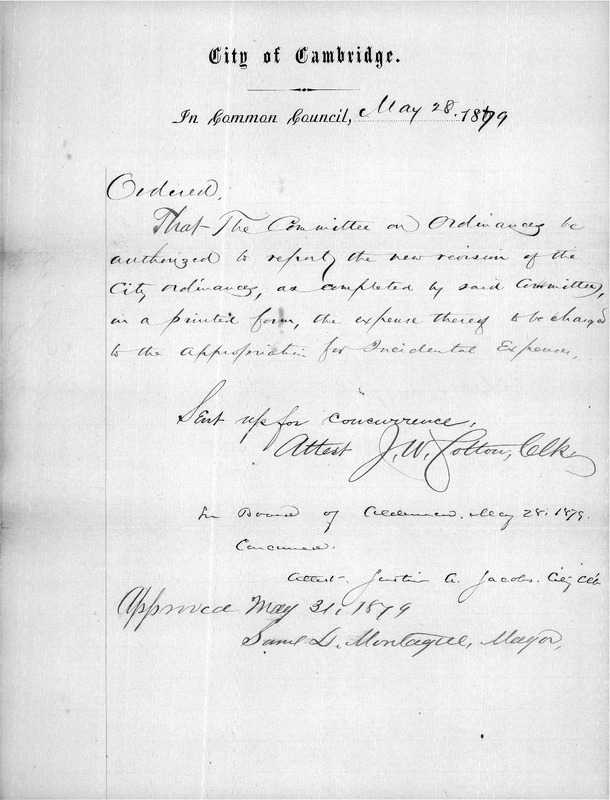 City of Cambridge.
In Common Council, May 28. 1879
Ordered,
That The Committee on Ordinances be
authorized to report the new revision of the
City Ordinances, as completed by said Committee,
in a printed form, the expense thereof to be charged
to the Appropriation for Incidental Expenses,
Sent up for concurrence,
Attest J. W. Cotton, Clk
In Board of Aldermen. May 28. 1879.
Concurred.
Attest. Justin A. Jacobs. City Clk
Approved May 31, 1879
Saml L. Montague, Mayor,